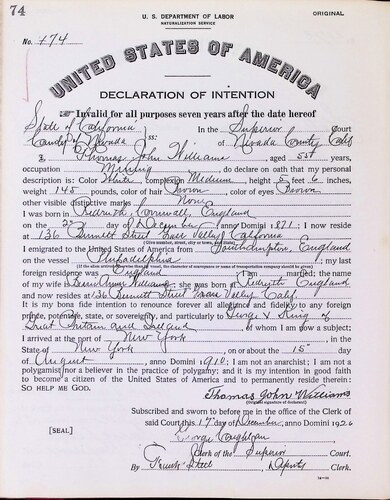 74
U. S. DEPARTMENT OF LABOR
NATURALIZATION SERVICE
ORIGINAL
No. 474
UNITED STATES OF AMERICA
DECLARATION OF INTENTION
Invalid for all purposes seven years after the date hereof
State of California
In the Superior Court
County of Nevada
ss:
of Nevada County Calif
I, Thomas John Williams, aged 55 years,
occupation Mining, do declare on oath that my personal
description is: Color White, complexion Medium, height 5 feet 6 inches,
weight 145 pounds, color of hair Brown, color of eyes Brown
other visible distinctive marks None
I was born in Redruth Cornwall, England
on the day of December, anno Domini 1871; I now reside
at 136 Bennett Street Grass Valley California
(Give number, street, city or town, and State)
I emigrated to the United States of America from Southampton, England
on the vessel Philadelphia; my last
foreign residence was England. I am married; the name
of my wife is Williams; she was born at Redruth England
and now resides at 136 Bennett Street Grass Valley Calif.
It is my bona fide intention to renounce forever all allegiance and fidelity to any foreign
prince, potentate, state, or sovereignty, and particularly to George V King of
Great Britain and Ireland, of whom I am now a subject;
I arrived at the port of New York, in the
State of New York, on or about the 15 day
of August, anno Domini 1910; I am not an anarchist; I am not a
polygamist nor a believer in the practice of polygamy; and it is my intention in good faith
to become a citizen of the United States of America and to permanently reside therein:
SO HELP ME GOD.
Thomas John Williams
(Original signature of declarant)
Subscribed and sworn to before me in the office of the Clerk of
[SEAL]
said Court this 17 day of December, anno Domini 1926
George Coughlan
Clerk of the Superior Court.
By Steel, Deputy Clerk.